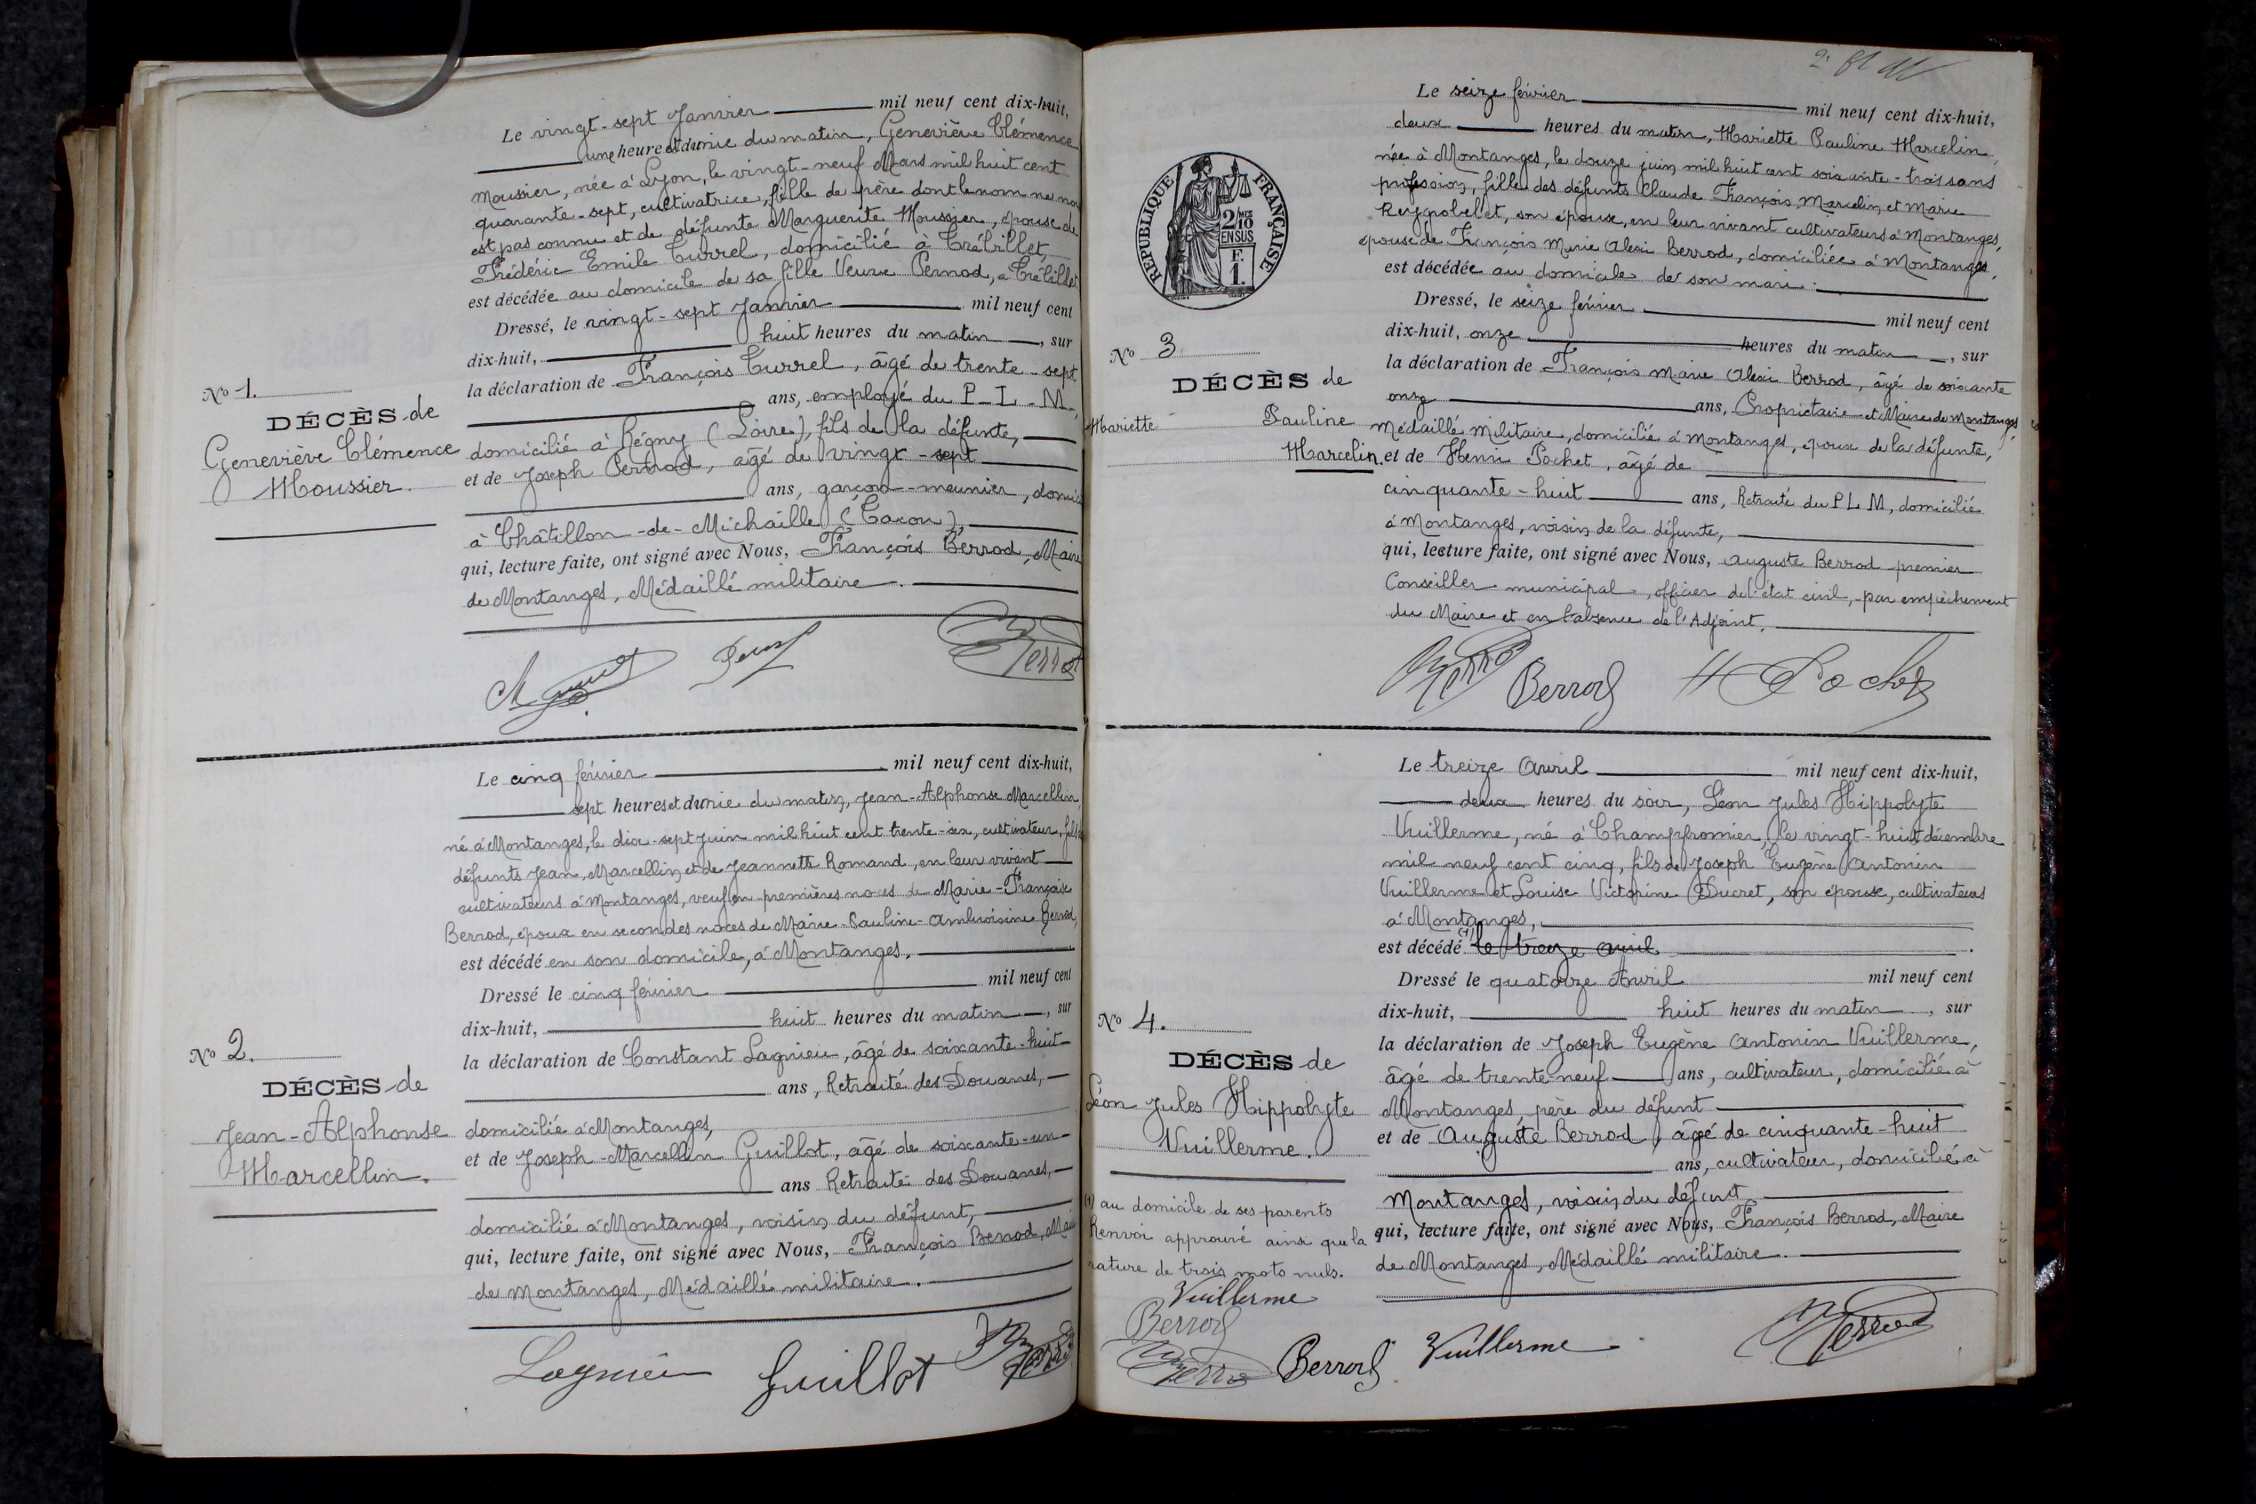 Le vingt-sept Janvier mil neuf cent dix-huit,
une heure et demie du matin, Geneviève Clémence
Moussier, née à Lyon, le vingt-neuf Mars mil huit cent
quarante-sept, cultivatrice, fille de père dont le nom ne nous
est pas connu et de défunte Marguerite Moussier, épouse de
Frédéric Emile Curvel, domicilié à Trébillet,
est décédée au domicile de sa fille Veuve Pernod, à Trébillet
Dressé, le vingt-sept Janvier mil neuf cent
dix-huit, huit heures du matin, sur
la déclaration de François Currel, âgé de trente-sept
ans, employé du P-L-M,
domicilié à Régny (Loire), fils de la défunte,
et de Joseph Pernod, âgé de vingt-sept
ans, garçon-meunier, domici
à Châtillon-de-Michaille (Tacon),
qui, lecture faite, ont signé avec Nous, François Berrod, Maire
de Montanges, Médaillé militaire.
No 1.
DÉCÈS de
Geneviève Clémence
Moussier.
Berrod
Le cinq février mil neuf cent dix-huit,
sept heures et demie du matin, Jean-Alphonse Marcellin,
né à Montanges, le dix-sept Juin mil huit cent trente-six, cultivateur, fils de
défunts Jean, Marcellin et de Jeannette Romand, en leur vivant
cultivateurs à Montanges, veuf en premières noces de Marie-Françoise
Berrod, époux en secondes noces de Marie-Pauline-Ambroisine Berrod,
est décédé en son domicile, à Montanges.
Dressé le cinq février mil neuf cent
dix-huit, huit heures du matin, sur
la déclaration de Constant Lagnieu, âgé de soixante-huit
ans, Retraité des Douanes,
domicilié à Montanges,
et de Joseph-Marcellin Guillot, âgé de soixante-un
ans Retraité des Douanes,
domicilié à Montanges, voisin du défunt,
qui, lecture faite, ont signé avec Nous, François Berrod, Maire
de Montanges, Médaillé militaire.
No 2.
DÉCÈS de
Jean-Alphonse
Marcellin.
Lagnieu Guillot Berrod
RÉPUBLIQUE FRANÇAISE
2/10 MES
EN SUS
F.
1.
Le seize février mil neuf cent dix-huit,
deux heures du matin, Mariette Pauline Marcelin,
née à Montanges, le douze juin mil huit cent soixante-trois sans
profession, fille des défunts Claude François Marcelin et Marie
Reygrobellet, son épouse, en leur vivant cultivateurs à Montanges,
épouse de François Marie Alexi Berrod, domiciliée à Montanges,
est décédée au domicile de son mari.
Dressé, le seize février mil neuf cent
dix-huit, onze heures du matin, sur
la déclaration de François Marie Alexi Berrod, âgé de soixante
onze ans, Propriétaire et Maire de Montanges
Médaillé Militaire, domicilié à Montanges, époux de la défunte,
et de Henri Pochet, âgé de
cinquante-huit ans, Retraité du PLM, domicilié
à Montanges, voisin de la défunte,
qui, lecture faite, ont signé avec Nous, Auguste Berrod premier
Conseiller municipal, officier de l'état civil, par empêchement
du Maire et en l'absence de l'Adjoint.
No 3
DÉCÈS de
Mariette Pauline
Marcelin.
Berrod Berrod H Pochet
Le treize Avril mil neuf cent dix-huit,
deux heures du soir, Léon Jules Hippolyte
Vuillerme, né à Champfromier, le vingt-huit décembre
mil neuf cent cinq, fils de Joseph Eugène Antonin
Vuillerme et Louise Victorine Ducret, son épouse, cultivateurs
à Montanges,
est décédé (1) le treize avril
Dressé le quatorze Avril mil neuf cent
dix-huit, huit heures du matin, sur
la déclaration de Joseph Eugène Antonin Vuillerme,
âgé de trente-neuf ans, cultivateur, domicilié à
Montanges, père du défunt
et de Auguste Berrod, âgé de cinquante-huit
ans, cultivateur, domicilié à
Montanges, voisin du défunt
qui, lecture faite, ont signé avec Nous, François Berrod, Maire
de Montanges, Médaillé militaire.
No 4.
DÉCÈS de
Léon Jules Hippolyte
Vuillerme.
(1) au domicile de ses parents
Renvoi approuvé ainsi que la
rature de trois mots nuls.
Vuillerme
Berrod
Berrod
Berrod Vuillerme Berrod